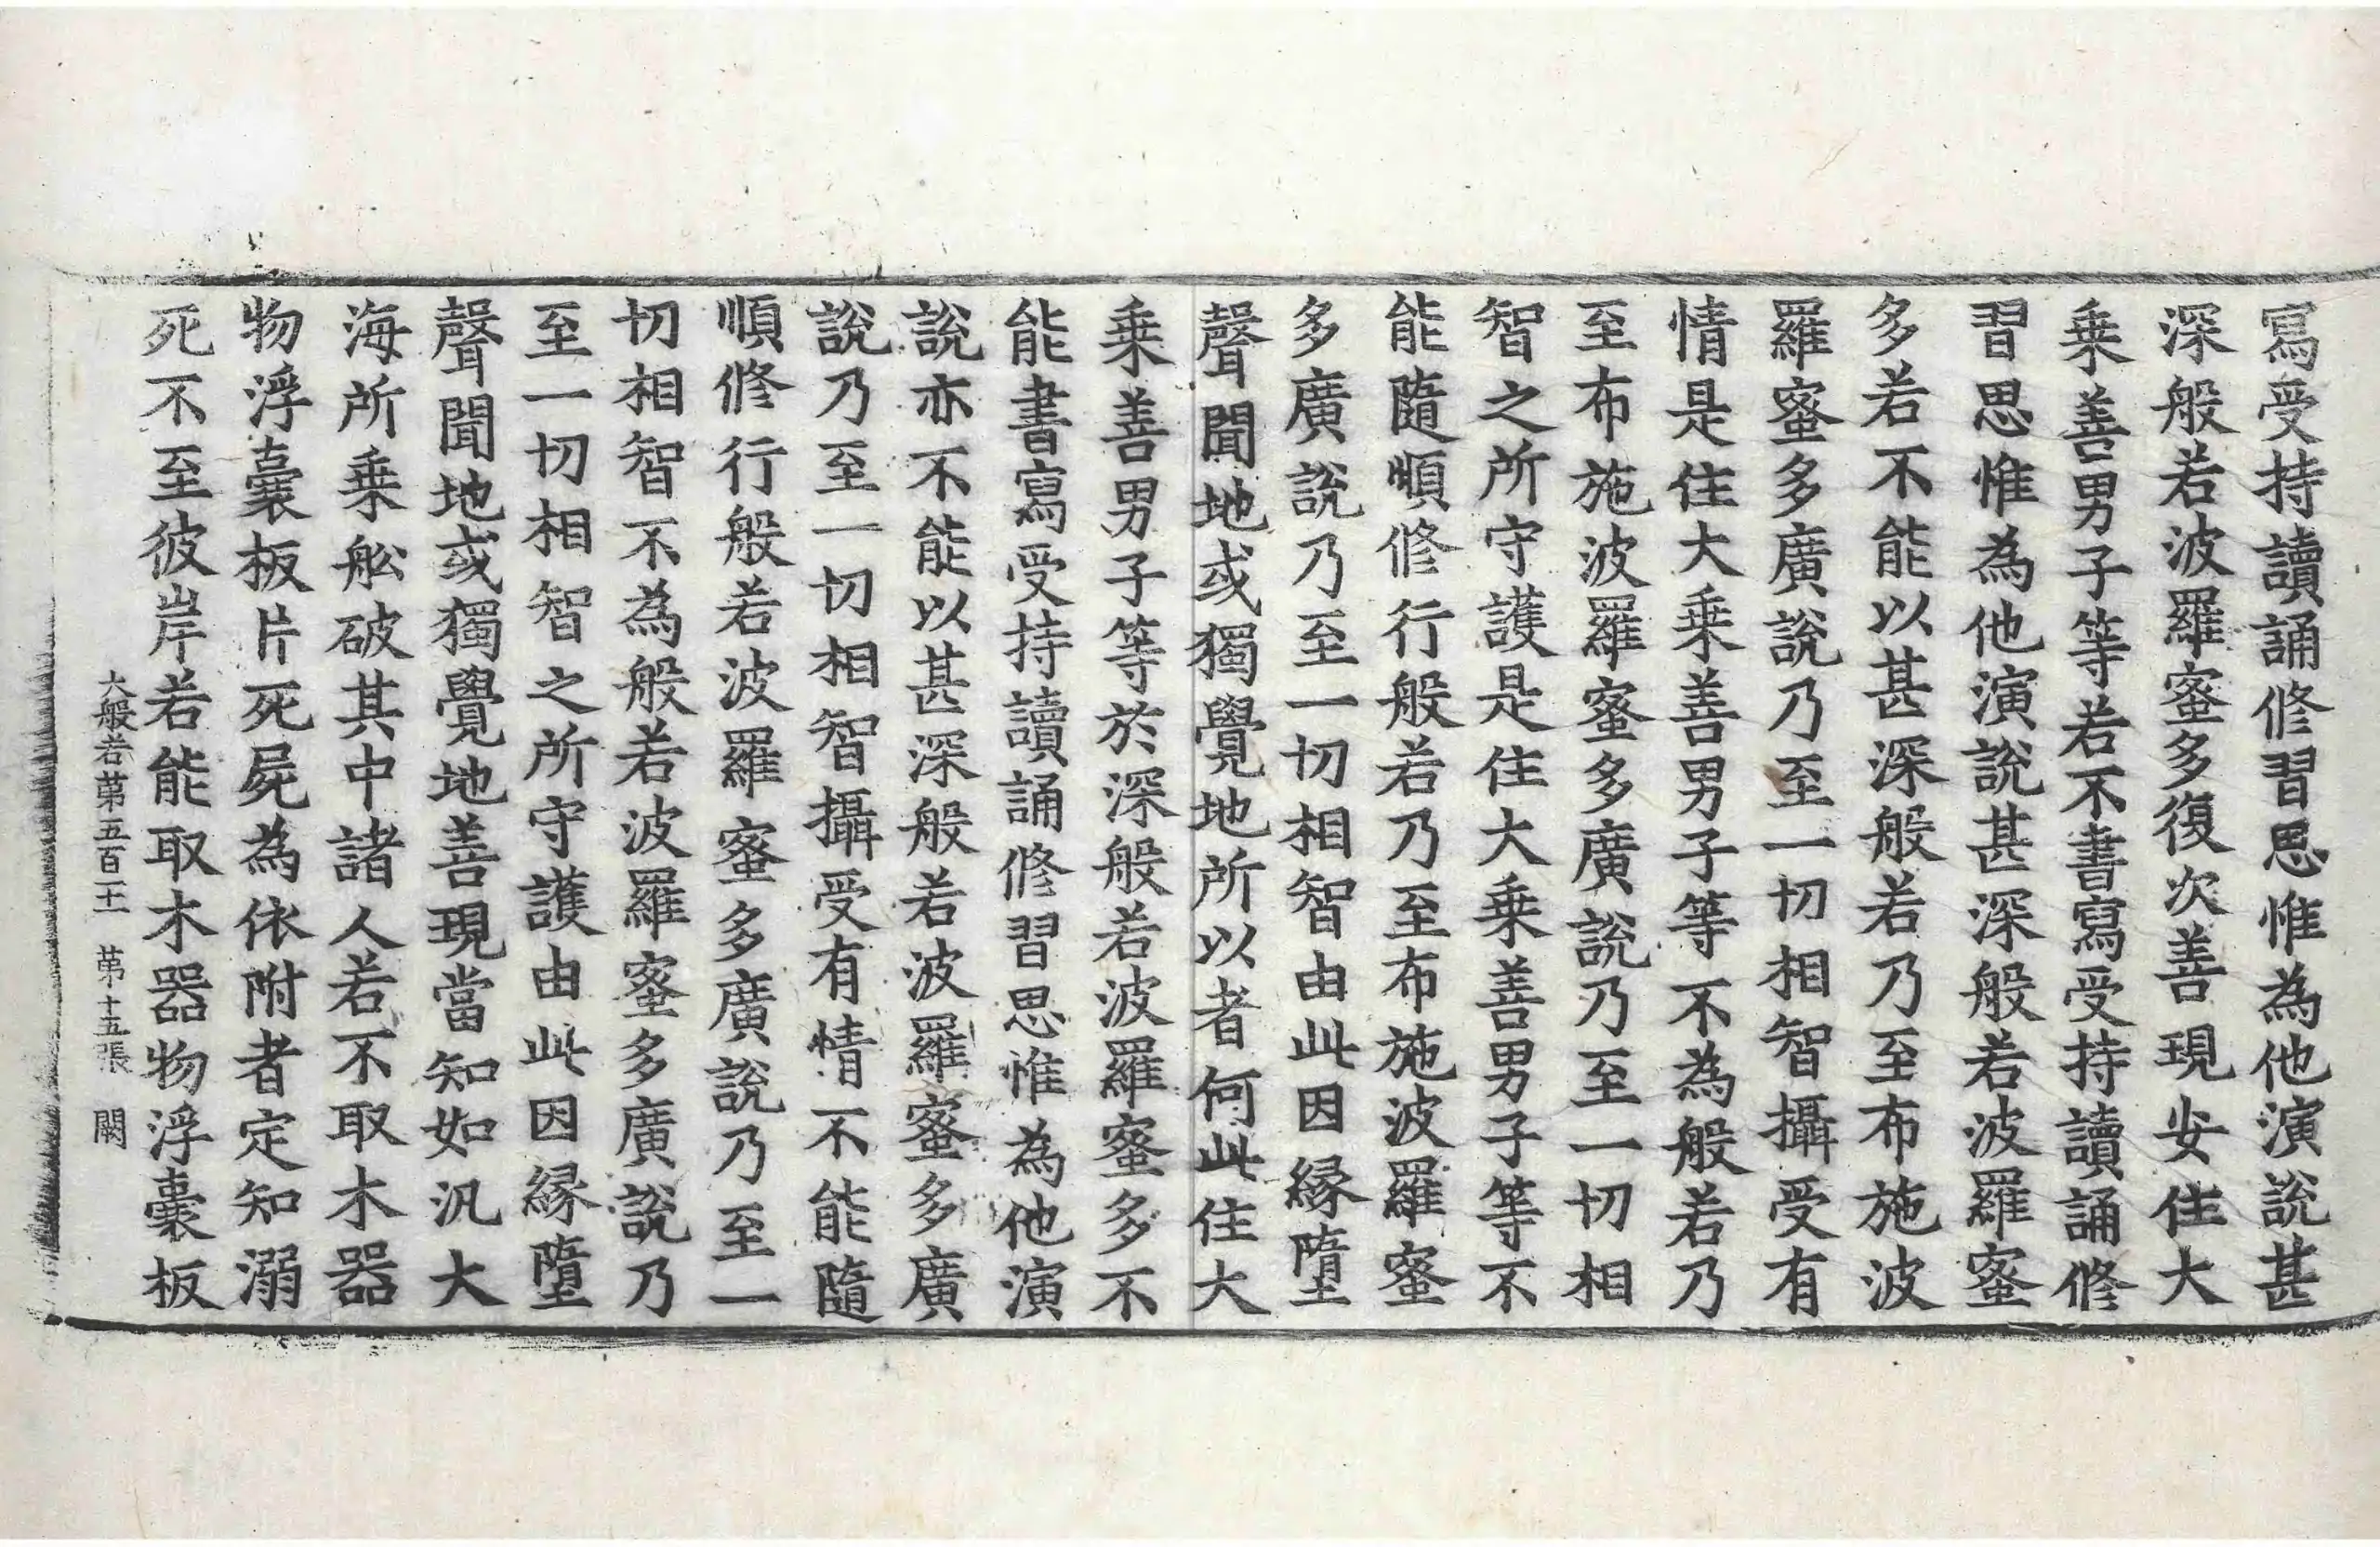 寫受持讀誦修習思惟為他演說甚
深般若波羅蜜多復次善現安住大
乗善男子等若不書寫受持讀誦修
習思惟為他演說甚深般若波羅蜜
多若不能以甚深般若乃至布施波
羅蜜多廣說乃至一切相智攝受有
情是住大乗善男子等不為般若乃
至布施波羅蜜多廣說乃至一切相
智之所守護是住大乗善男子等不
能隨順修行般若乃至布施波羅蜜
多廣說乃至一切相智由此因縁墮
聲聞地或獨覺地所以者何此住大
乗善男子等於深般若波羅蜜多不
能書寫受持讀誦修習思惟為他演
說亦不能以甚深般若波羅蜜多廣
說乃至一切相智攝受有情不能隨
順修行般若波羅蜜多廣說乃至一
切相智不為般若波羅蜜多廣說乃
至一切相智之所守護由此因縁墮
聲聞地或獨覺地善現當知如汎大
海所乗舩破其中諸人若不取木器
物浮囊板片死屍為依附者定知溺
死不至彼岸若能取木器物浮囊板
大般若第五百二十一 第十五張 闕